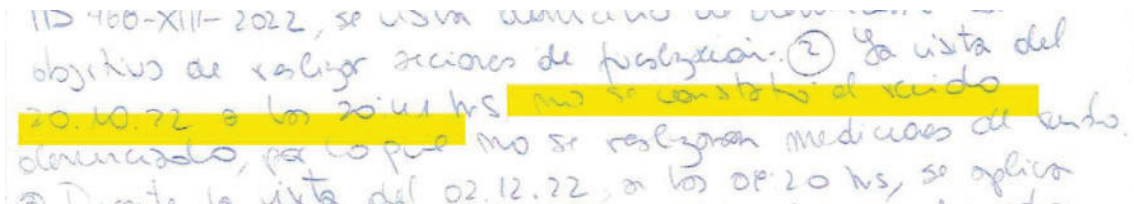 ID 466-XIII-2022, se visita domicilio de
objetivo de realizar acciones de fiscalización. ② La visita del
20.10.22 a las 20:41 hrs no se constató el ruido
denunciado, por lo que no se realizaron mediciones de ruido.
③ Durante la visita del 02.12.22, a las 09:20 hrs, se aplica